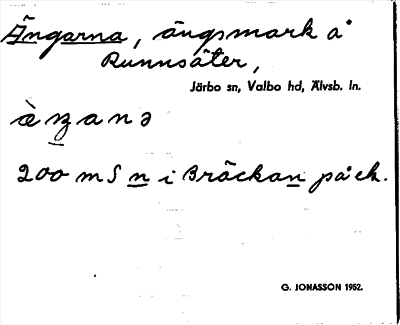 Ängarna, ängsmark å
Runnsäter,
Järbo sn, Valbo hd, Älvsb. ln.
200 m S n i Bräckan på ek.
G. JONASSON 1952.